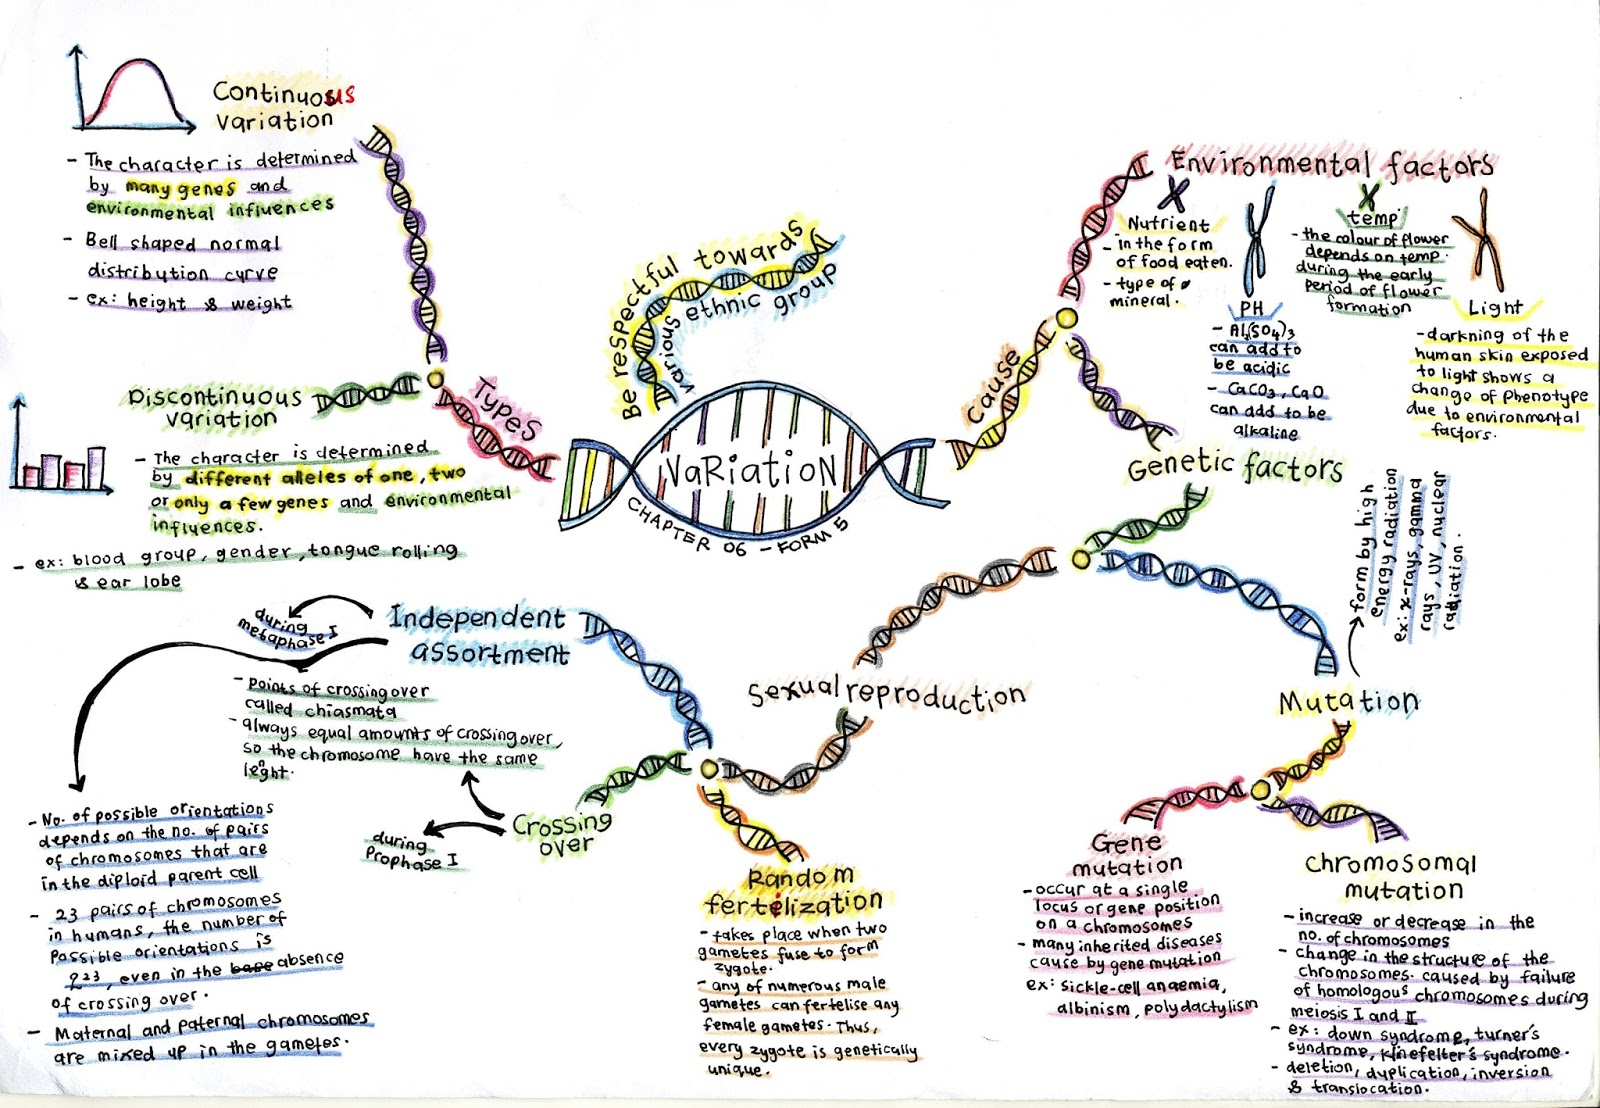 Continuous
variation
- The character is determined
by many genes and
environmental influences
- Bell shaped normal
distribution curve
- ex: height & weight
Discontinuous
variation
- The character is determined
by different alleles of one, two
or only a few genes and environmental
influences.
- ex: blood group, gender, tongue rolling
& ear lobe
Types
Be respectful towards
various ethnic group
VaRiatioN
CHAPTER 06 - FORM 5
cause
Environmental factors
Nutrient
- in the form
of food eaten.
- type of
mineral.
PH
- Al2(SO4)3
can add to
be acidic
- CaCO3, CaO
can add to be
alkaline
temp
- the colour of flower
depends on temp.
during the early
period of flower
formation
Light
- darkning of the
human skin exposed
to light shows a
change of phenotype
due to environmental
factors.
Genetic factors
form by high
energy radiation
ex: x-rays, gamma
rays, UV, nuclear
radiation.
Mutation
Gene
mutation
- occur at a single
locus or gene position
on a chromosomes
- many inherited diseases
cause by gene mutation
ex: sickle-cell anaemia,
albinism, polydactylism
Chromosomal
mutation
- increase or decrease in the
no. of chromosomes
- change in the structure of the
chromosomes. caused by failure
of homologous chromosomes during
meiosis I and II
- ex: down syndrome, turner's
syndrome, klinefelter's syndrome.
- deletion, duplication, inversion
& translocation.
Sexual reproduction
Independent
assortment
during
metaphase I
- Points of crossing over
called chiasmata
- always equal amounts of crossing over,
so the chromosome have the same
leght.
n
Crossing
over
during
Prophase I
- No. of possible orientations
depends on the no. of pairs
of chromosomes that are
in the diploid parent cell
- 23 pairs of chromosomes
in humans, the number of
possible orientations is
2^23, even in the base absence
of crossing over.
- Maternal and paternal chromosomes
are mixed up in the gametes.
Random
fertilization
- takes place when two
gametes fuse to form
zygote.
- any of numerous male
gametes can fertelise any
female gametes. Thus,
every zygote is genetically
unique.